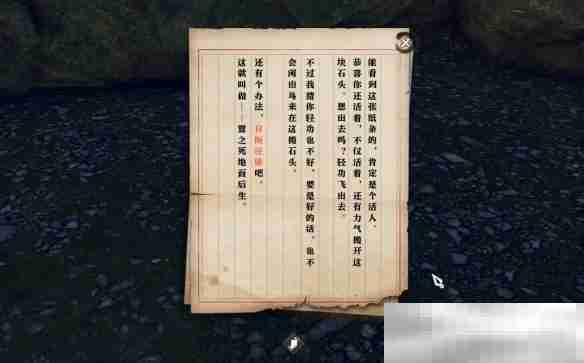 能看到这张纸条的，肯定是个活人。
恭喜你还活着，不仅活着，还有力气搬开这
块石头。想出去吗？轻功飞出去。
不过我猜你轻功也不好，要是好的话，也不
会闲出鸟来在这搬石头。
还有个办法，吧。
这就叫做——置之死地而后生。